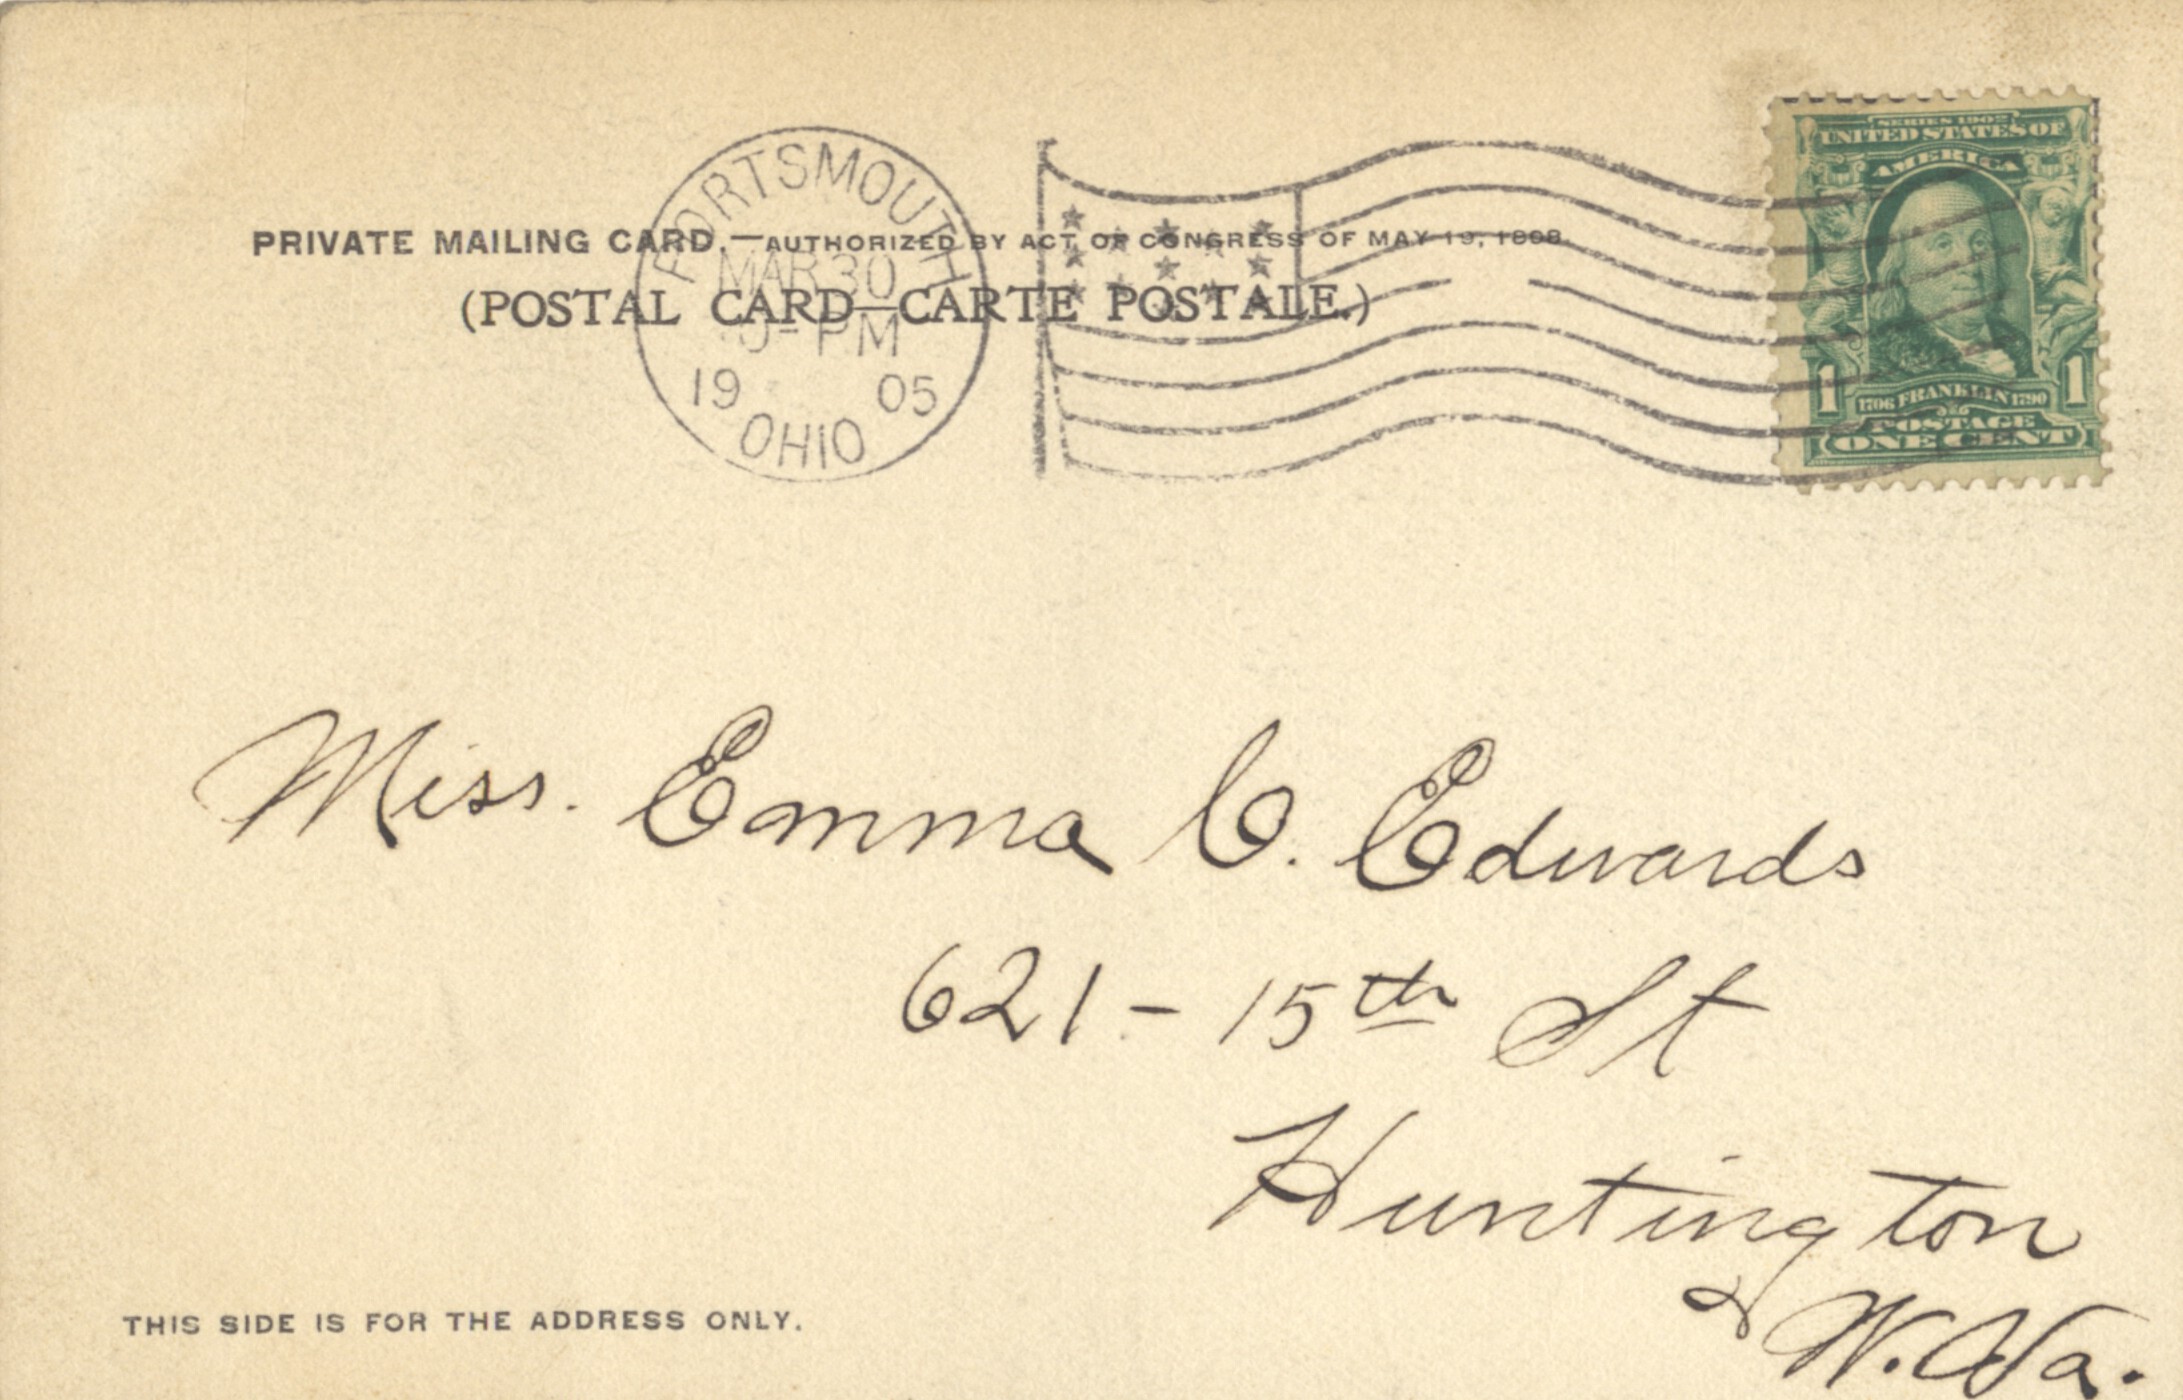 SERIES 1902
UNITED STATES OF
AMERICA
PORTSMOUTH
PRIVATE MAILING CARD.—AUTHORIZED BY ACT OF CONGRESS OF MAY 19, 1898.
MAR 30
(POSTAL CARD—CARTE POSTALE.)
PM
19 05
OHIO
1 1
1706 FRANKLIN 1790
POSTAGE
ONE CENT
Miss. Emma C. Edwards
621 - 15th St
Huntington
W. Va.
THIS SIDE IS FOR THE ADDRESS ONLY.